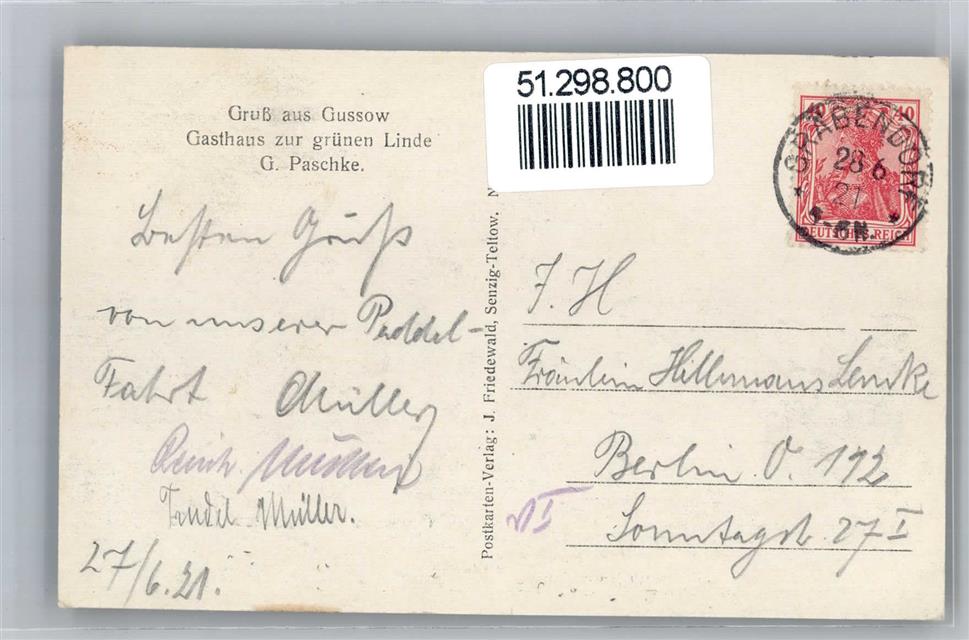 Gruß aus Gussow
Gasthaus zur grünen Linde
G. Paschke.
Besten Gruß
von unserer Paddel-
Fahrt Müller
Müller
Müller.
27/6.21.
Postkarten-Verlag: J. Friedewald, Senzig-Teltow. N
51.298.800
40
GRÄBENDORF
28 6
21
5-6N.
DEUTSCHES REICH
F. H
Fräulein Lemke
Berlin O. 112
Sonntagstr. 27 I